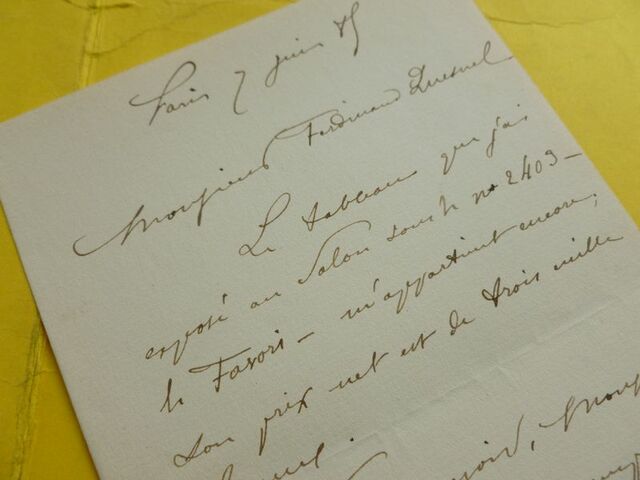 Paris 7 juin 85
Monsieur Ferdinand Duesnel
Le tableau que j'ai
exposé au Salon sous le no 2403 –
le Favori – m'appartient encore,
son prix net est de trois mille